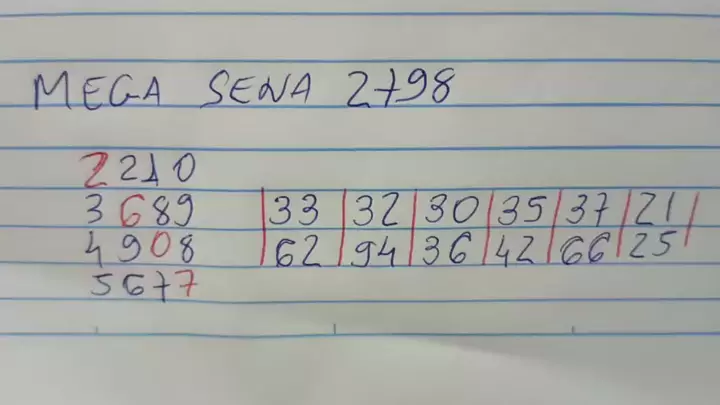 MEGA SENA 2798
2210
3689 33 32 30 35 37 21
4908 62 94 36 42 66 25
5677